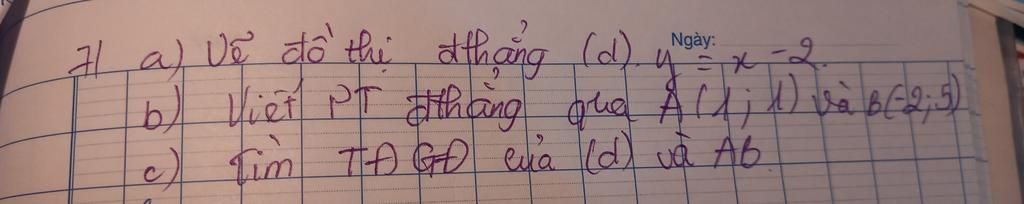 Ngày:
7/ a) Vẽ đồ thị đthẳng (d). y = x - 2.
b) Viết PT đthẳng qua A(1; 1) và B(-2; 5)
c) Tìm TĐGĐ của (d) và AB